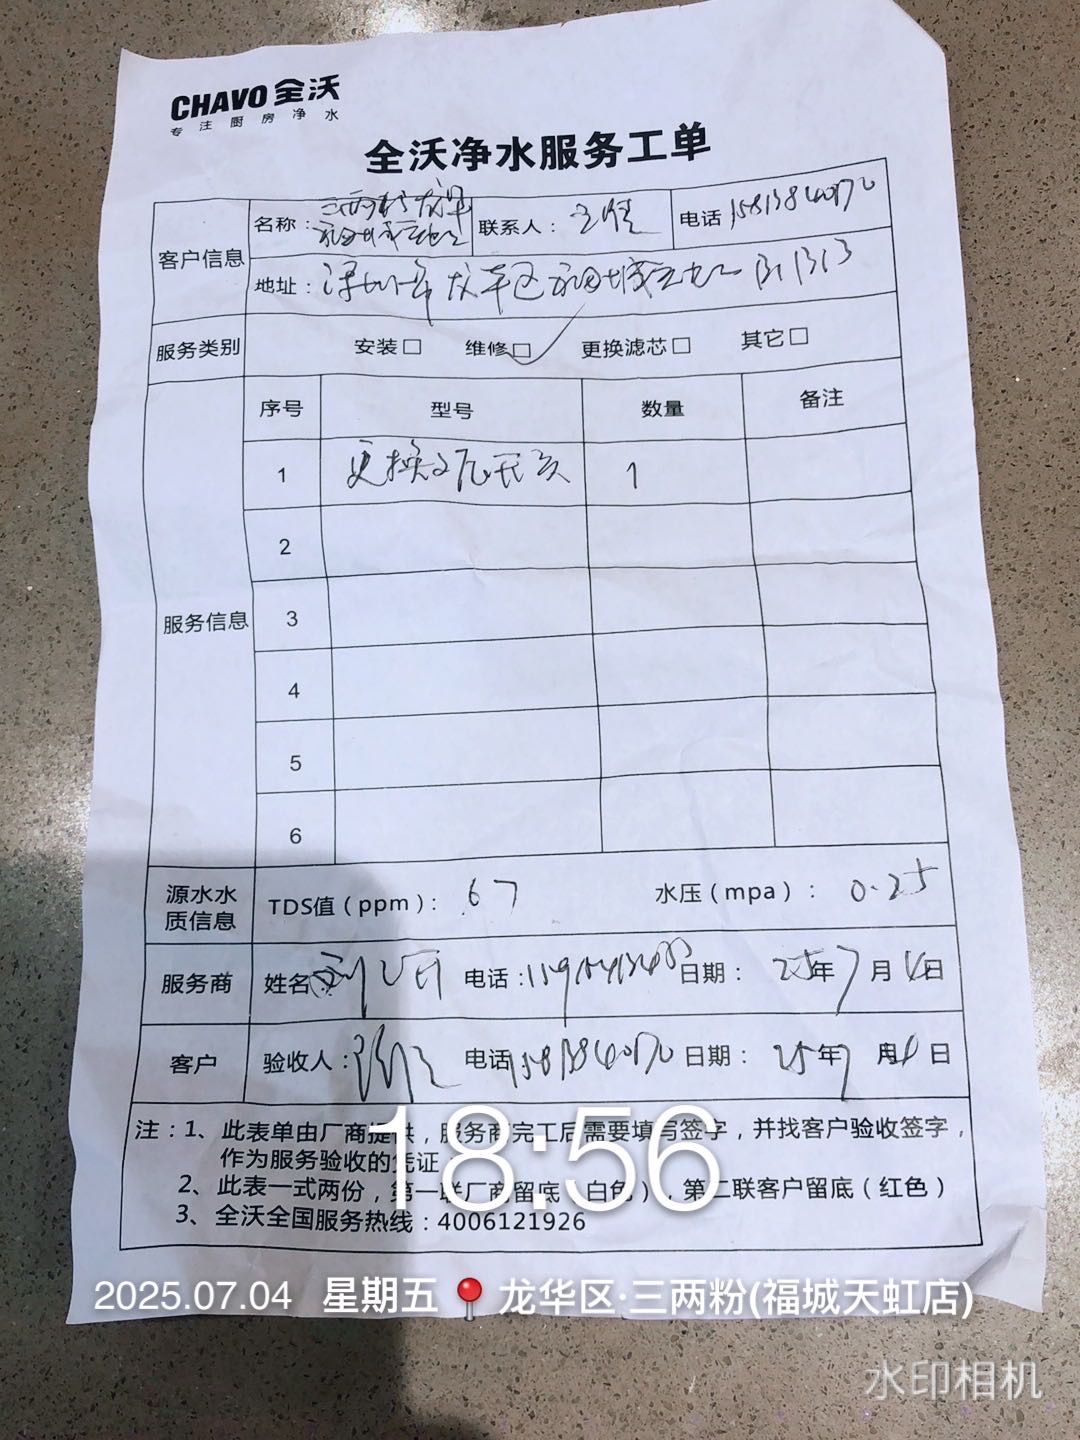 CHAVO 全沃
专注厨房净水
全沃净水服务工单
客户信息
名称：
联系人：
电话
地址：
服务类别
安装□ 维修□ 更换滤芯□ 其它□
服务信息
序号 型号 数量 备注
1 更换 1
2
3
4
5
6
源水水
质信息
TDS值（ppm）： 67 水压（mpa）： 0.25
服务商 姓名： 电话： 日期： 25年7月4日
客户 验收人： 电话 日期： 25年7月4日
注：1、此表单由厂商提供，服务商完工后需要填写签字，并找客户验收签字，
作为服务验收的凭证
2、此表一式两份，第一联厂商留底（白色），第二联客户留底（红色）
3、全沃全国服务热线：4006121926
18:56
2025.07.04 星期五 龙华区·三两粉(福城天虹店)
水印相机